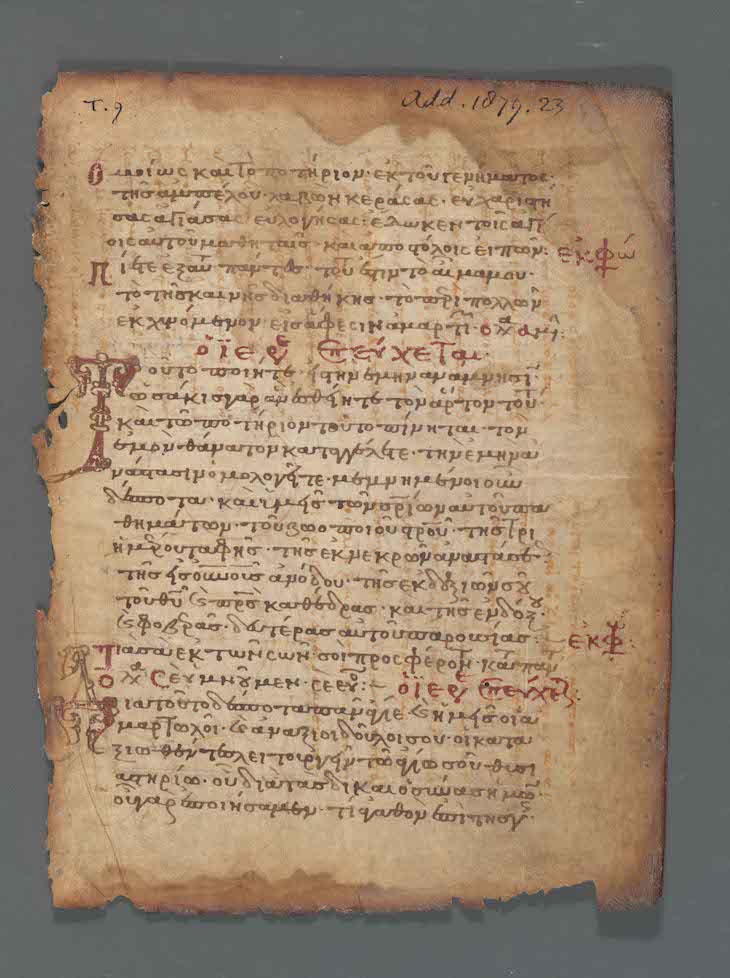 T. 9
Add. 1879. 23
Ὁμοίως καὶ τὸ ποτήριον· ἐκ τοῦ γεννήματος·
τῆς ἀμπέλου· λαβὼν κεράσας· εὐχαριστή
σας ἁγιάσας εὐλογήσας· ἔδωκεν τοῖς ἁγί
οις αὐτοῦ μαθηταῖς καὶ ἀποστόλοις εἰπών· ἐκφώ
Πίετε ἐξ αὐτοῦ πάντες· τοῦτό ἐστιν τὸ αἷμά μου·
τὸ τῆς καινῆς διαθήκης· τὸ περὶ πολλῶν
ἐκχυνόμενον εἰς ἄφεσιν ἁμαρτι· ὁ λα ἀμὴ:
ὁ ἱερ ἐπεύχεται·
Τοῦτο ποιῆτε εἰς τὴν ἐμὴν ἀνάμνησι
ὡσάκις γὰρ ἂν ἐσθίητε τὸν ἄρτον τοῦτ
καὶ τὼ ποτήριον τοῦτο πίνηται· τὸν
ἐμὸν θάνατον καταγγέλετε· τὴν ἐμὴν ἀ
νάστασιν ὁμολογεῖτε· μεμνημένοι οὖν
δέσποτα· καὶ ἡμεῖς τῶν σρίων αὐτοῦ πα
θημάτων· τοῦ ζωοποιοῦ στροῦ· τῆς τρι
ημέρου ταφῆς· τῆς ἐκ νεκρῶν ἀναστάσε·
τῆς εἰς οὐνοὺς ἀνόδου· τῆς ἐκ δεξιῶν σου
τοῦ θυ καὶ πρς καθέδρας· καὶ τῆς ἐνδόξου
καὶ φοβερᾶς· δευτέρας αὐτοῦ παρουσίας:
ἐκφ:
Τὰ σὰ ἐκ τῶν σῶν· σοὶ προσφέρομ· κατὰ παν
ὁ λα Σὲ ὑμνοῦμεν· σὲ εὐ:
ὁ ἱερ ἐπεύχετ:
Διὰ τοῦτο δέσποτα πανάγιε καὶ ἡμεῖς οἱ ἁ
μαρτωλοὶ· καὶ ἀνάξιοι δοῦλοι σου· οἱ κατα
ξιωθέντες λειτουργεῖν τῶ ἁγίω σου θυσι
αστηρίω· οὐ διὰ τὰς δικαιοσύνας ἡμῶν·
οὐ γὰρ ἐποιήσαμεν· τὶ ἀγαθὸν ἐπὶ τῆς γῆς·